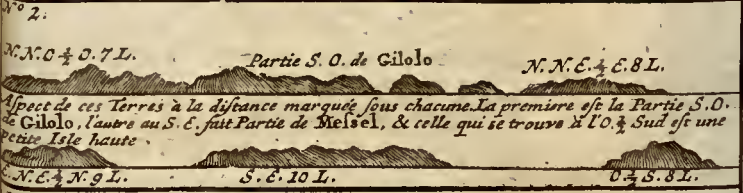 N.º 2.
N.N.O ½ O. 7 L. Partie S.O. de Gilolo N.N.E. ½ E. 8 L.
Aſpect de ces Terres à la diſtance marquée ſous chacune. La premiere eſt la Partie S.O.
de Gilolo, l'autre au S.E. fait Partie de Meſsel, & celle qui se trouve à l'O. ½ Sud eſt une
petite Isle haute.
E.N.E. ½ N. 9 L. S.E. 10 L. O ½ S. 8 L.